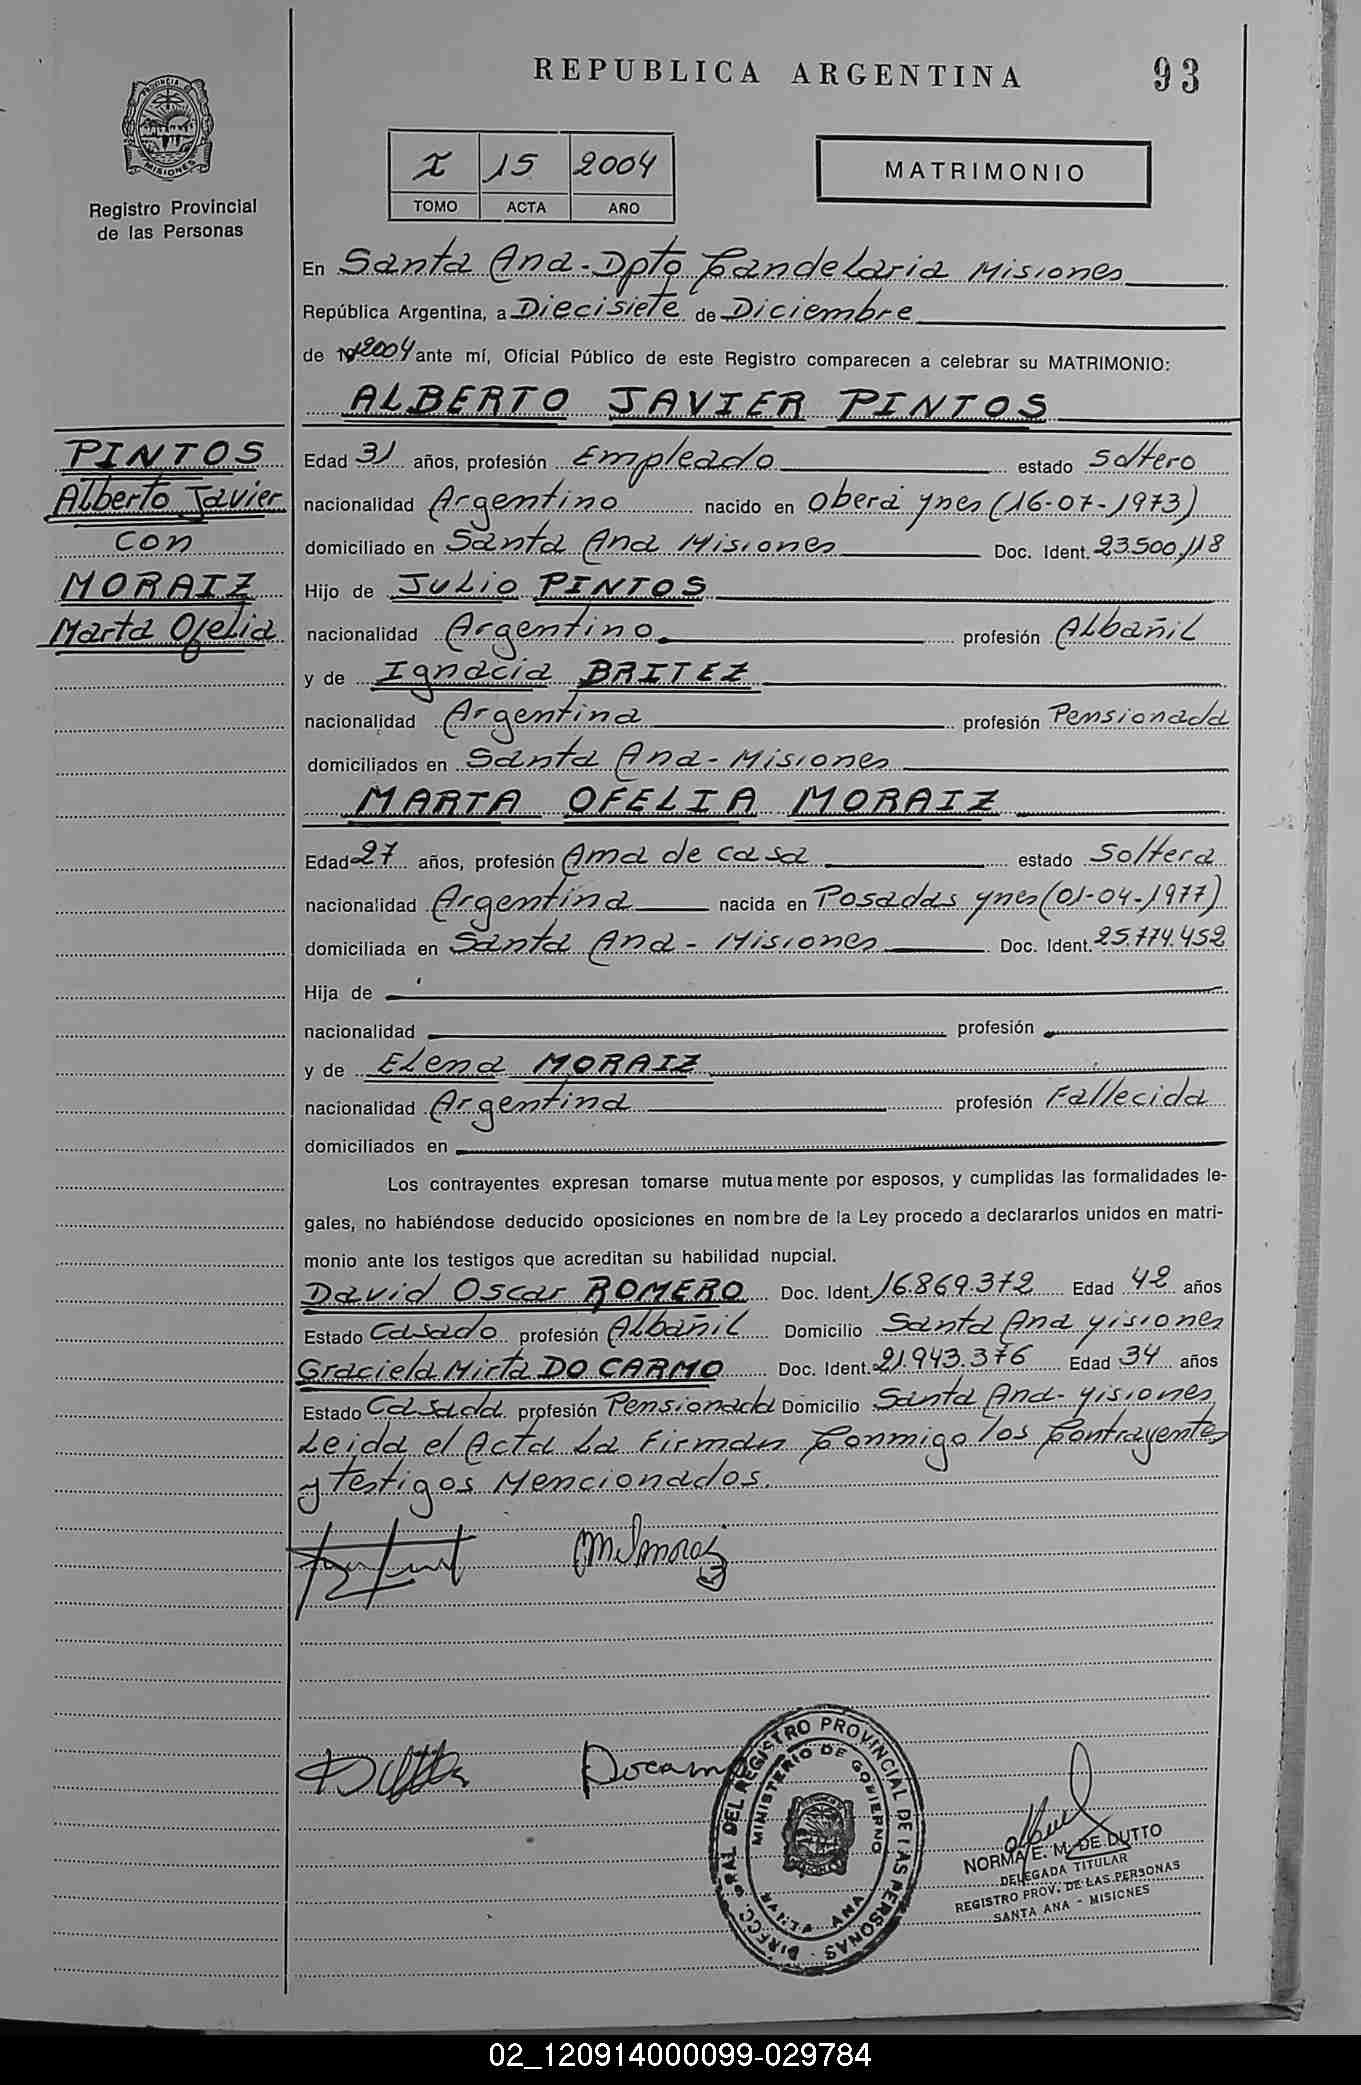 REPUBLICA ARGENTINA
93
PROVINCIA DE
MISIONES
Registro Provincial
de las Personas
I 15 2004
TOMO ACTA AÑO
MATRIMONIO
En Santa Ana - Dpto Candelaria Misiones
República Argentina, a Diecisiete de Diciembre
de 2004 ante mí, Oficial Público de este Registro comparecen a celebrar su MATRIMONIO:
ALBERTO JAVIER PINTOS
PINTOS
Alberto Javier
con
MORAIZ
Marta Ofelia
Edad 31 años, profesión Empleado estado Soltero
nacionalidad Argentino nacido en Oberá Mnes (16-07-1973)
domiciliado en Santa Ana Misiones Doc. Ident. 23.500.118
Hijo de Julio PINTOS
nacionalidad Argentino profesión Albañil
y de Ignacia BRITEZ
nacionalidad Argentina profesión Pensionada
domiciliados en Santa Ana - Misiones
MARTA OFELIA MORAIZ
Edad 27 años, profesión Ama de casa estado Soltera
nacionalidad Argentina nacida en Posadas Mnes (01-04-1977)
domiciliada en Santa Ana - Misiones Doc. Ident. 25.774.452
Hija de
nacionalidad profesión
y de Elena MORAIZ
nacionalidad Argentina profesión Fallecida
domiciliados en
Los contrayentes expresan tomarse mutuamente por esposos, y cumplidas las formalidades le-
gales, no habiéndose deducido oposiciones en nombre de la Ley procedo a declararlos unidos en matri-
monio ante los testigos que acreditan su habilidad nupcial.
David Oscar ROMERO Doc. Ident. 16.869.372 Edad 42 años
Estado Casado profesión Albañil Domicilio Santa Ana Misiones
Graciela Mirta DO CARMO Doc. Ident. 21.943.376 Edad 34 años
Estado Casada profesión Pensionada Domicilio Santa Ana - Misiones
Leida el Acta La Firman Conmigo los Contrayentes
y testigos Mencionados.
DIRECC. GRAL DEL REGISTRO PROVINCIAL DE LAS PERSONAS
MINISTERIO DE GOBIERNO
ANA
NORMA E. M. DE DUTTO
DELEGADA TITULAR
REGISTRO PROV. DE LAS PERSONAS
SANTA ANA - MISIONES
02_120914000099-029784